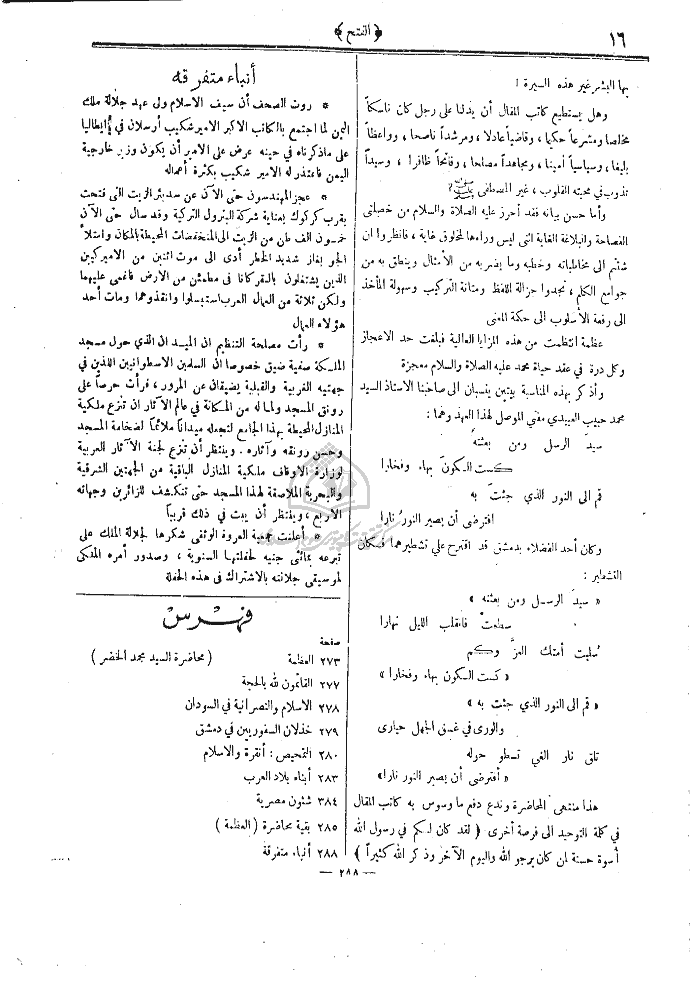 ١٦
﴿ الفتح ﴾
بها البشر غير هذه السيرة !
وهل يستطيع كاتب المقال أن يدلنا على رجل كان ناسكاً
مخلصا ومشرعاً حكيما ، وقاضياً عادلا ، ومرشداً ناصحا ، وواعظاً
بليغا ، وسياسياً أمينا ، ومجاهداً مصلحا ، وفاتحاً ظافرا ، وسيداً
تذوب في محبته القلوب ، غير المصطفى ﷺ ؟
وأما حسن بيانه فقد أحرز عليه الصلاة والسلام من خصلتي
الفصاحة والبلاغة الغاية التي ليس وراءها لمخلوق غاية ، فانظروا ان
شئتم الى مخاطباته وخطبه وما يضربه من الأمثال وينطق به من
جوامع الكلم ، تجدوا جزالة اللفظ ومتانة التركيب وسهولة المأخذ
الى رفعة الأسلوب الى حكمة المعنى
عظمة انتظمت من هذه المزايا العالية فبلغت حد الاعجاز
وكل درة في عقد حياة محمد عليه الصلاة والسلام معجزة
وأذكر بهذه المناسبة بيتين ينسبان الى صاحبنا الاستاذ السيد
محمد حبيب العبيدي مفتي الموصل لهذا العهد وهما :
سيدَ الرسل ومن بعثته
كست الكون بهاء وفخارا
قم الى النور الذي جئت به
افترضى أن يصير النور نارا
وكان أحد الفضلاء بدمشق قد اقترح علي تشطيرهما فكان
التشطير :
« سيدَ الرسل ومن بعثته »
سطعت فانقلب الليل نهارا
سُلبت أمتك العزَّ وكم
« كست الكون بهاء وفخارا »
« قم الى النور الذي جئت به »
والورى في غسق الجهل حيارى
تلق نار الغي تسطو حوله
« أفترضى أن يصير النور نارا »
هذا منتهى المحاضرة وندع دفع ما وسوس به كاتب المقال
في كلة التوحيد الى فرصة أخرى ﴿ لقد كان لكم في رسول الله
أسوة حسنة لمن كان يرجو الله واليوم الآخر وذكر الله كثيراً ﴾
أنباء متفرقه
* روت الصحف أن سيف الاسلام ولى عهد جلالة ملك
اليمن لما اجتمع بالكاتب الاكبر الامير شكيب أرسلان في إيطاليا
على ماذكرناه في حينه عرض على الامير أن يكون وزير خارجية
اليمن فاعتذر له الامير شكيب بكثرة أعماله
* عجز المهندسون حتى الآن عن سد بئر الزيت التى فتحت
بقرب كركوك بعناية شركة البترول التركية وقد سال حتى الآن
خمسون الف طن من الزيت الى المنخفضات المحيطة بالمكان وامتلأ
الجو بغاز شديد الخطر أدى الى موت اثنين من الاميركيين
الذين يشتغلون بالقركانا في مطمئن من الارض فاغمى عليهما
ولكن ثلاثة من العمال العرب استبسلوا وانقذوهما ومات أحد
هؤلاء العمال
* رأت مصلحة التنظيم ان الميدان الذي حول مسجد
الملكة صفية ضيق خصوصا ان السلمين الاسطوانيين اللذين في
جهتيه الغربية والقبلية يضيقان عن المرور ، فرأت حرصاً على
رونق المسجد ولما له من المكانة في عالم الآثار ان تنزع ملكية
المنازل المحيطة بهذا الجامع لتجعله ميداناً ملائماً لفخامة المسجد
وحسن رونقه وآثاره . وينتظر أن تنزع لجنة الآثار العربية
لوزارة الاوقاف ملكية المنازل الباقية من الجهتين الشرقية
والبحرية الملاصقة لهذا المسجد حتى تنكشف للزائرين وجهاته
الاربع ، وينتظر أن يبت في ذلك قريباً
* أعلنت جمعية العروة الوثقى شكرها لجلالة الملك على
تبرعه بمائتى جنيه لحفلتها السنوية ، وصدور أمره الملكى
لموسيقى جلالته بالاشتراك في هذه الحفلة
فهرس
صفحة
٢٧٣ العظمة ( محاضرة السيد محمد الخضر )
٢٧٧ القائمون لله بالحجة
٢٧٨ الاسلام والنصرانية في السودان
٢٧٩ خذلان السفوريين في دمشق
٢٨٠ التمحيص : أنقرة والاسلام
٢٨٣ أبناء بلاد العرب
٣٨٤ شئون مصرية
٢٨٥ بقية محاضرة ( العظمة )
٢٨٨ أنباء متفرقة
— ٢٨٨ —